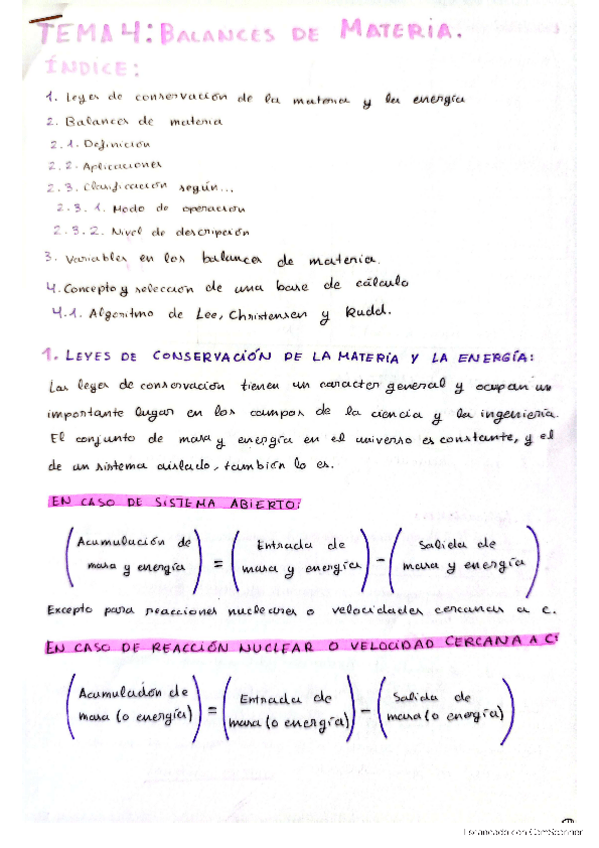 TEMA 4: BALANCES DE MATERIA.
ÍNDICE:
1. Leyes de conservación de la materia y la energía
2. Balances de materia
2.1. Definición
2.2. Aplicaciones
2.3. Clasificación según...
2.3.1. Modo de operación
2.3.2. Nivel de descripción
3. Variables en los balances de materia.
4. Concepto y selección de una base de cálculo
4.1. Algoritmo de Lee, Christensen y Rudd.
1. LEYES DE CONSERVACIÓN DE LA MATERIA Y LA ENERGÍA:
Las leyes de conservación tienen un caracter general y ocupan un
importante lugar en los campos de la ciencia y la ingeniería.
El conjunto de masa y energía en el universo es constante, y el
de un sistema aislado, también lo es.
EN CASO DE SISTEMA ABIERTO:
(Acumulación de masa y energía) = (Entrada de masa y energía) - (Salida de masa y energía)
Excepto para reacciones nucleares o velocidades cercanas a c.
EN CASO DE REACCIÓN NUCLEAR O VELOCIDAD CERCANA A C:
(Acumulación de masa (o energía)) = (Entrada de masa (o energía)) - (Salida de masa (o energía))
Escaneado con CamScanner